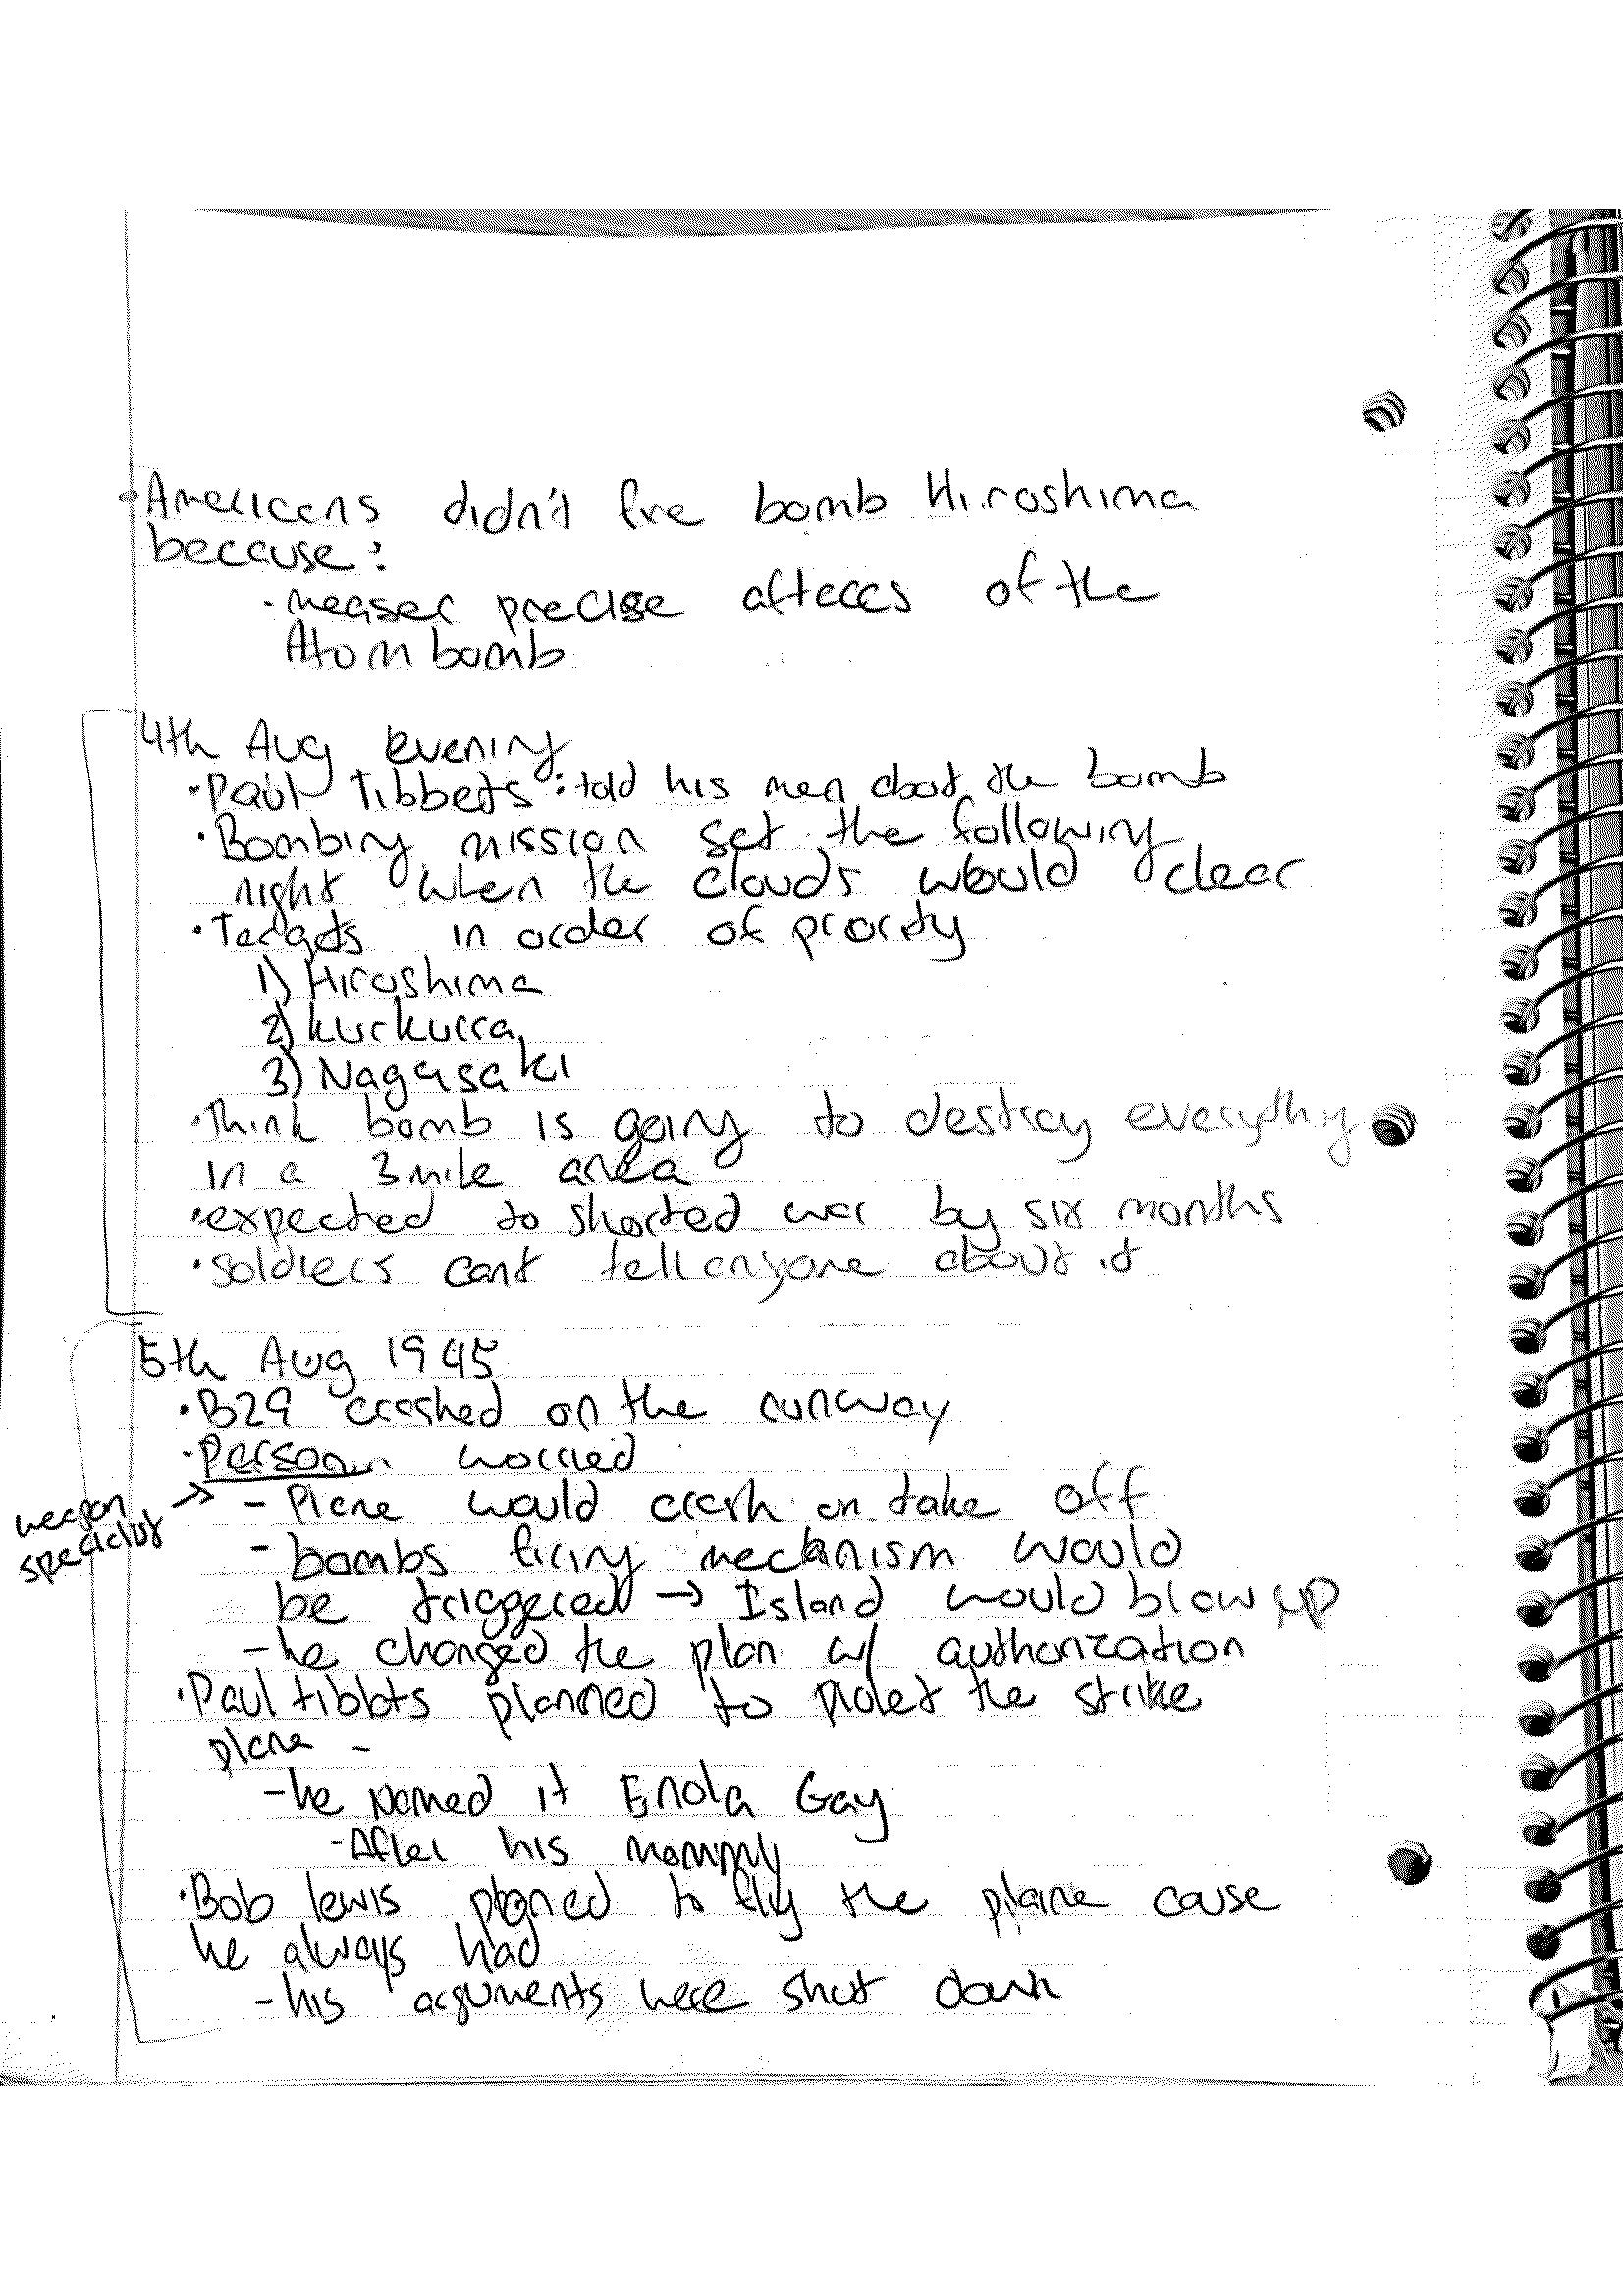 · Americans didn't fire bomb Hiroshima
because:
· measer precise affeces of the
Atom bomb
4th Aug evening
· Paul Tibbets: told his men about the bomb
· Bombing mission set the following
night when the clouds would clear
· Targets in order of priority
1) Hiroshima
2) kurkurra
3) Nagasaki
· Think bomb is going to destroy everything
in a 3 mile area
· expected to shorted war by six months
· soldiers cant tell anyone about it
5th Aug 1945
· B29 crashed on the runway
· Person worried
weapon
specialist →
- Plane would crash on take off
- bombs firing mechanism would
be triggered → Island would blow up
- he changed the plan w/ authorization
· Paul tibbts planned to piolet the strike
plane -
- he named it Enola Gay
- After his mommy
· Bob lewis planed to fly the plane cause
he always had
- his arguments were shut down